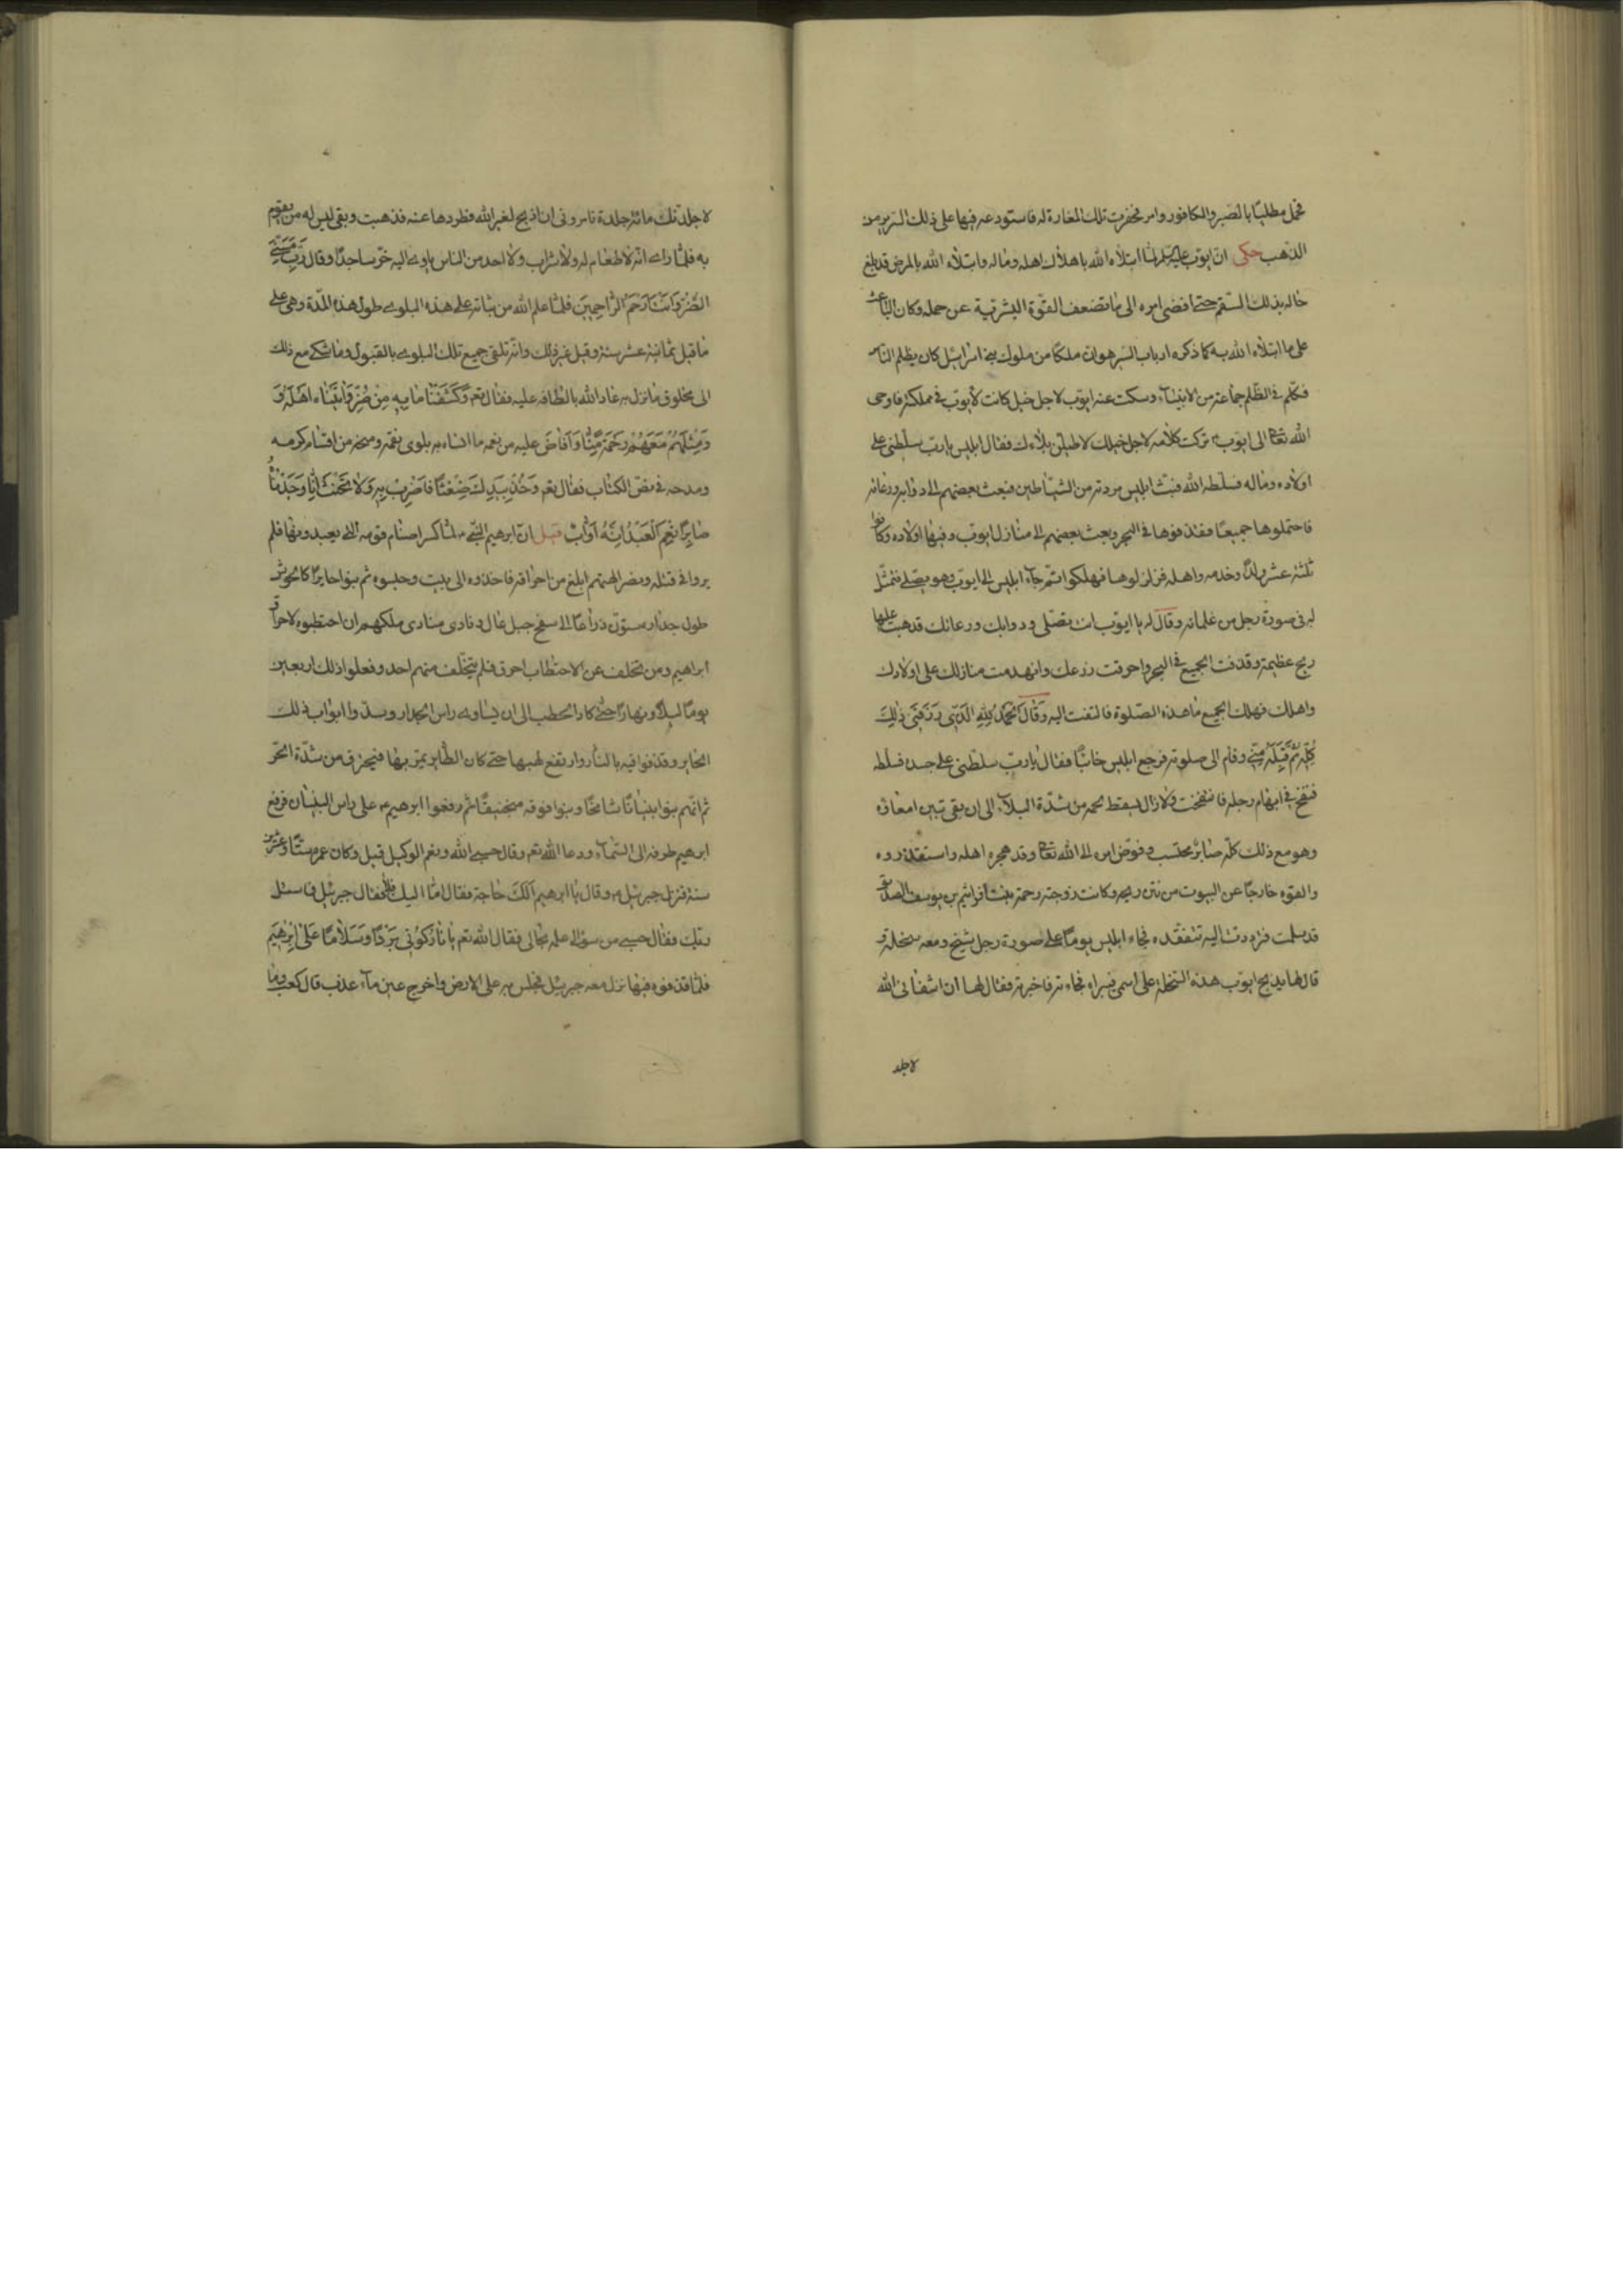 فحمل مطليًا بالصبر والكافور وامر فحفرت تلك المغارة له فاستودعه فيها على ذلك السرير من
الذهب حكى ان ايوب عليه السلم لما ابتلاه الله باهلاك اهله وماله وابتلاه الله بالمرض قد بلغ
حاله بذلك السقم حتى افضى امره الى ما تضعف القوة البشرية عن حمله وكان الباعث
على ما ابتلاه الله به كما ذكره ارباب السير هو ان ملكًا من ملوك بنى اسرائيل كان يظلم الناس
فكلم فى الظلم جماعة من الانبياء وسكت عنه ايوب لاجل خيل كانت لايوب فى مملكته فاوحى
الله تعالى الى ايوب تركت كلامه لاجل خيلك لاطيلن بلاءك فقال ابليس يا رب سلطنى على
اولاده وماله فسلطه الله فبث ابليس مردته من الشياطين فبعث بعضهم الى دوابه ورعاته
فاحتملوها جميعًا فقذفوها فى البحر وبعث بعضهم الى منازل ايوب وفيها اولاده وكانوا
ثلثة عشر ولدًا وخدمه واهله فزلزلوها فهلكوا ثم جاء ابليس الى ايوب وهو يصلى فتمثل
له فى صورة رجل من غلمانه وقال له يا ايوب انت تصلى ودوابك ورعاتك قد هبت عليها
ريح عظيمة وقذفت الجميع فى البحر واحرقت زرعك وانهدمت منازلك على اولادك
واهلك فهلك الجميع ما هذه الصلوة فالتفت اليه وقال الحمد لله الذى رزقنى ذلك
كله ثم قبله منى وقام الى صلوته فرجع ابليس خائبًا فقال يا رب سلطنى على جسده فسلطه
فنفخ فى ابهام رجله فانتفخت ولا زال يسقط لحمه من شدة البلاء الى ان بقى تبين امعاؤه
وهو مع ذلك كله صابر محتسب وفوض امره الى الله تعالى وقد هجره اهله واستقذروه
والقوه خارجًا عن البيوت من نتن ريحه وكانت زوجته رحمة بنت افرائيم بن يوسف الصديق
قد سلمت فترددت اليه تتفقده فجاء ابليس يومًا على صورة رجل شيخ ومعه سخلة و
قال لها يذبح ايوب هذه السخلة على اسمى فيبراء فجاءته فاخبرته فقال لها ان شفانى الله
لاجلد
لاجلدنك مائة جلدة تامرونى ان اذبح لغير الله فطردها عنه فذهبت وبقى ليس له من يقوم
به فلما راى انه لا طعام له ولا شراب ولا احد من الناس ياوى اليه خر ساجدًا وقال رب مسنى
الضر وانت ارحم الراحمين فلما علم الله من ثباته على هذه البلوى طول هذه المدة وهى على
ما قيل ثمانية عشر سنة وقيل غير ذلك وانه تلقى جميع تلك البلوى بالقبول وما شكى مع ذلك
الى مخلوق ما نزل به عاد الله بالطافه عليه فقال تعم وكشفنا ما به من ضر واتيناه اهله و
ومثلهم معهم رحمة منا وافاض عليه من نعمه ما انساه به بلوى نقمه ومنحه من اقسام كرمه
ومدحه فى نص الكتاب فقال تعم وخذ بيدك ضغثًا فاضرب به ولا تحنث انا وجدناه
صابرًا نعم العبد انه اواب قيل ان ابرهيم النبى لما كسر اصنام قومه التى يعبدونها فلم
يروا فى قتله ونصر الهتهم ابلغ من احراقه فاخذوه الى بيت وحبسوه ثم بنوا حايرًا كالحوش
طول جداره ستون ذراعًا الى سفح جبل عال ونادى منادى ملكهم ان احتطبوا لاحراق
ابراهيم ومن تخلف عن الاحتطاب احرق فلم يتخلف منهم احد وفعلوا ذلك اربعين
يومًا ليلًا ونهارًا حتى كاد الحطب الى ان يساوى راس الجدار وسدوا ابواب ذلك
الحاير وقذفوا فيه بالنار وارتفع لهبها حتى كان الطاير يمر بها فيحترق من شدة الحر
ثم انهم بنوا بنيانًا شامخًا وبنوا فوقه منجنيقًا ثم رفعوا ابرهيم على راس البنيان فرفع
ابرهيم طرفه الى السماء ودعا الله تعم وقال حسبى الله ونعم الوكيل قيل وكان عمره ستًا وعشرين
سنة فنزل جبرئيل وقال يا ابرهيم الك حاجة فقال اما اليك فلا فقال جبرئيل فاسئل
ربك فقال حسبى من سؤالى علمه بحالى فقال الله تعم يا نار كونى بردًا وسلامًا على ابرهيم
فلما قذفوه فيها نزل معه جبرئيل فجلس به على الارض واخرج عين ماء عذب قال كعب وما